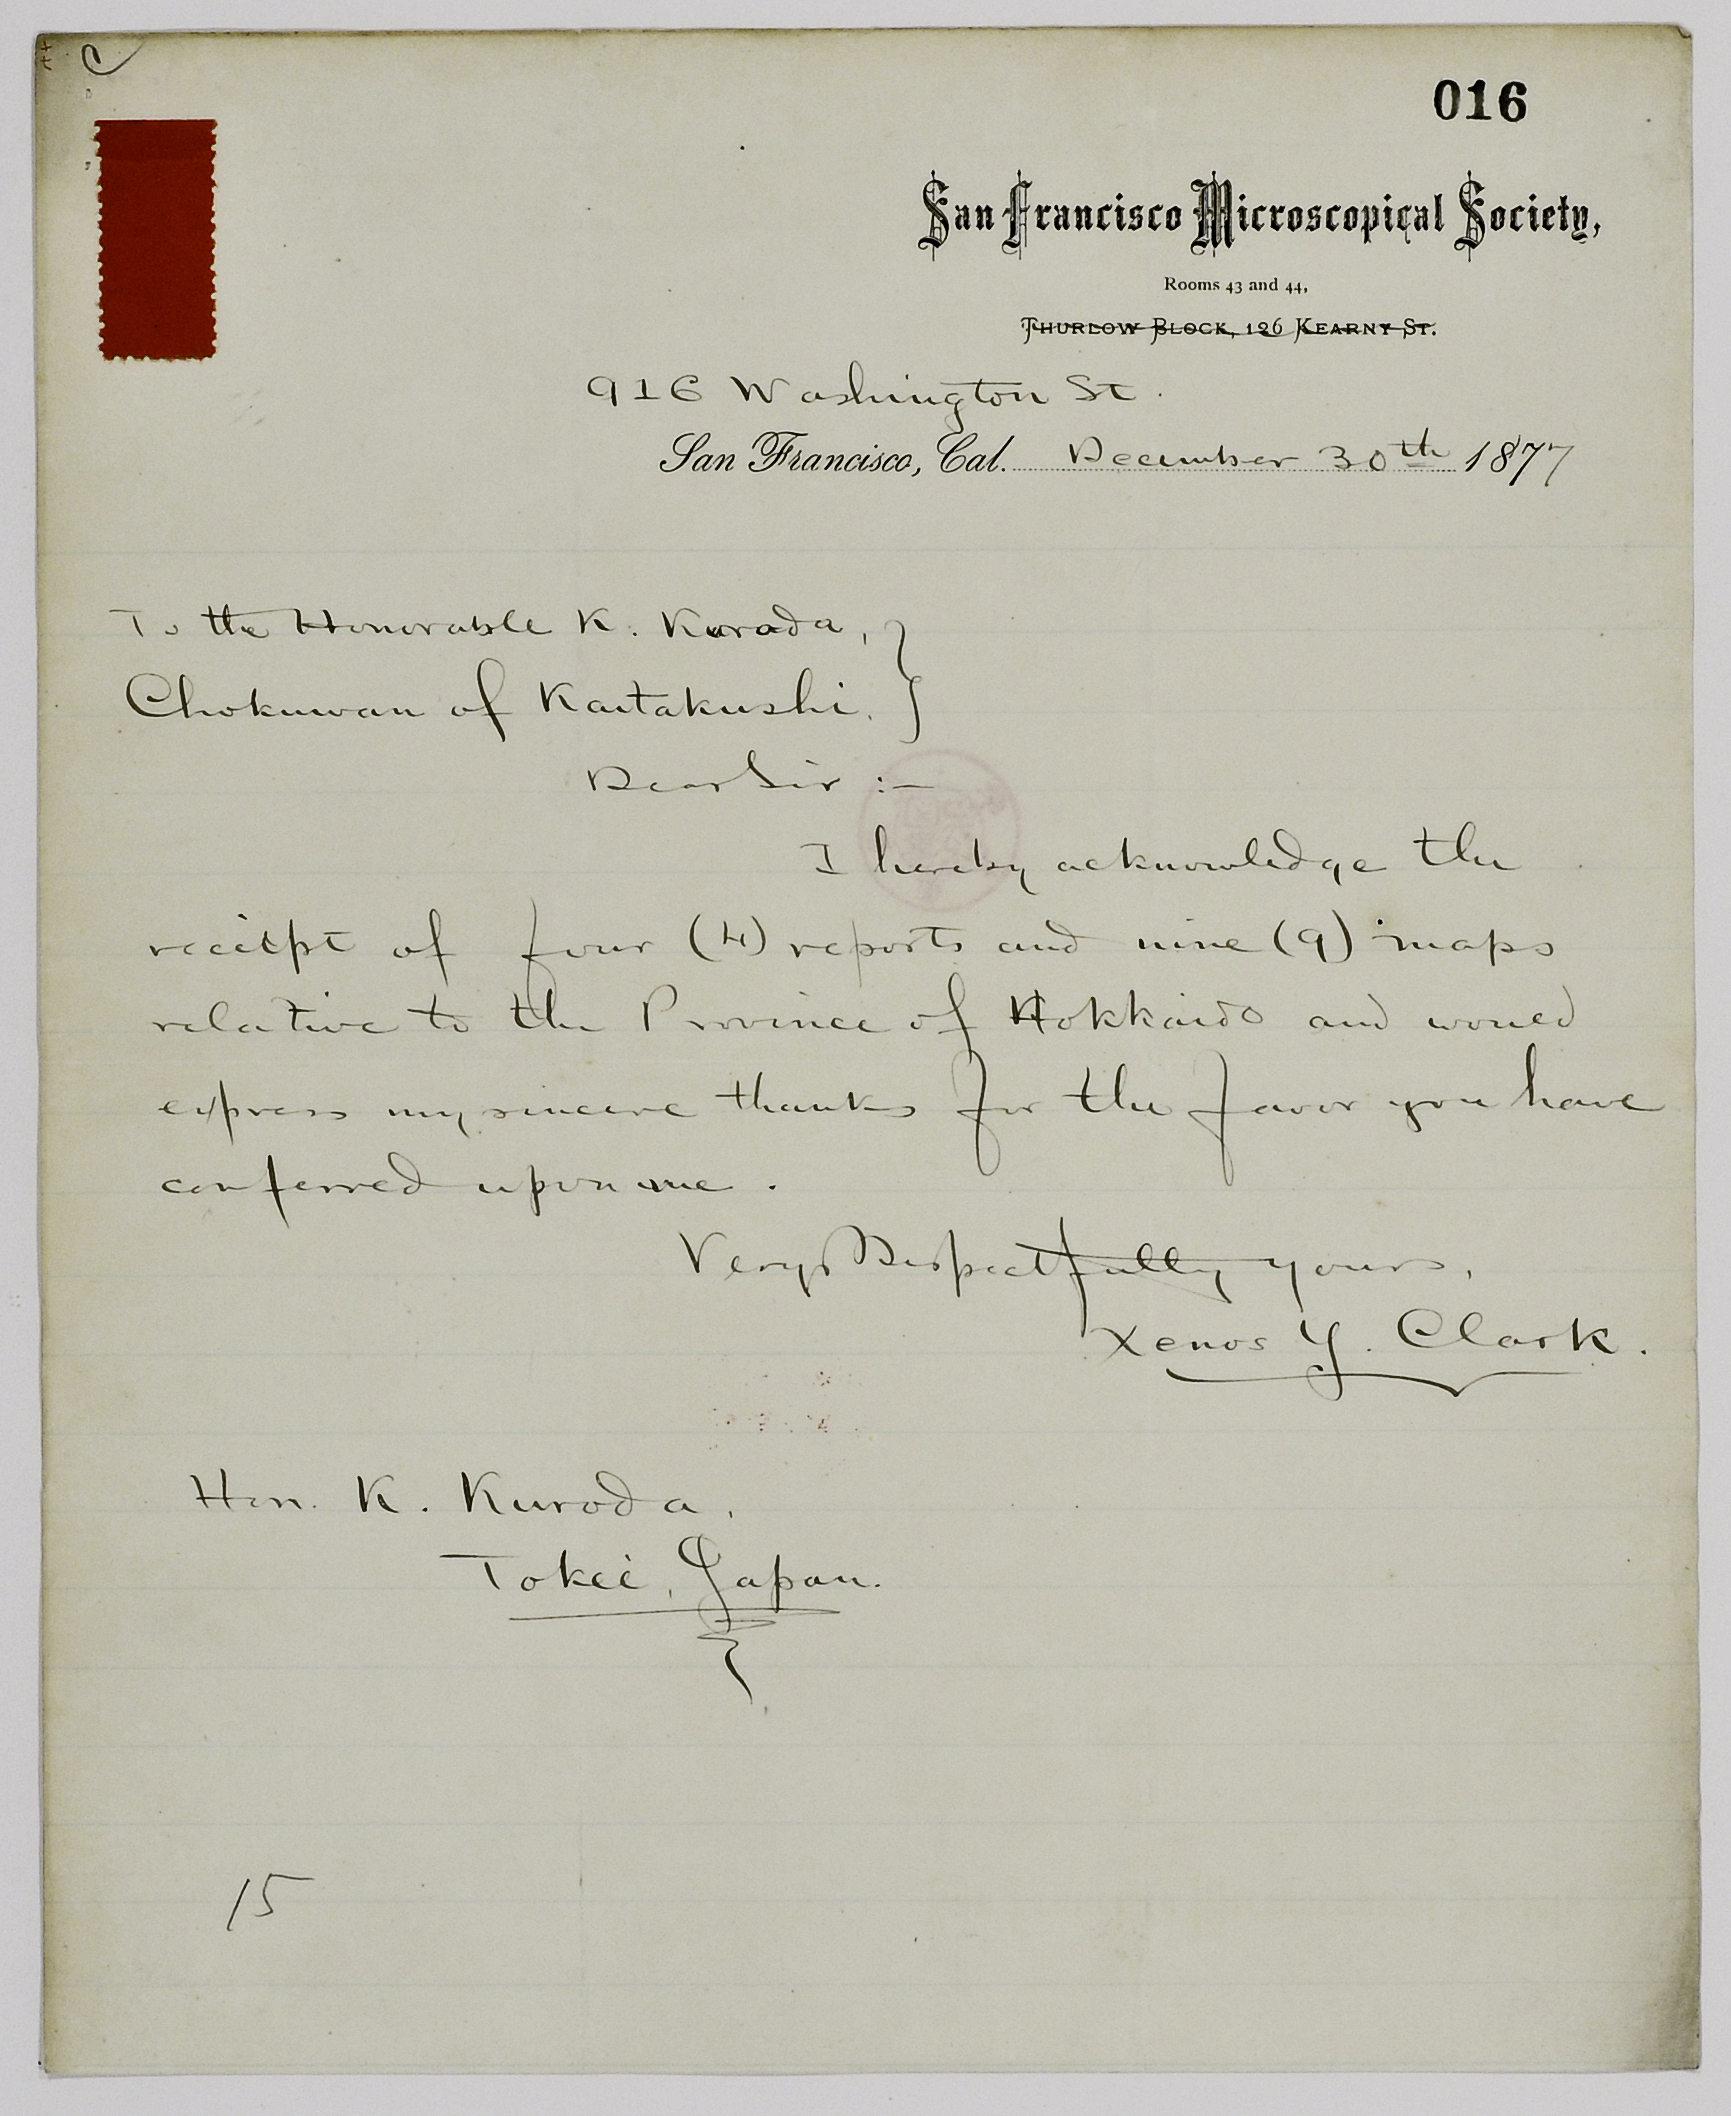 016
San Francisco Microscopical Society,
Rooms 43 and 44,
THURLOW BLOCK, 126 KEARNY ST.
916 Washington St.
San Francisco, Cal. December 30th 1877
To the Honorable K. Kuroda,
Chokuwan of Kaitakushi.
Dear Sir :—
I hereby acknowledge the
receipt of four (4) reports and nine (9) maps
relative to the Province of Hokkaido and would
express my sincere thanks for the favor you have
conferred upon me.
Very Respectfully yours,
Xenos Y. Clark.
Hon. K. Kuroda,
Tokei, Japan.
15